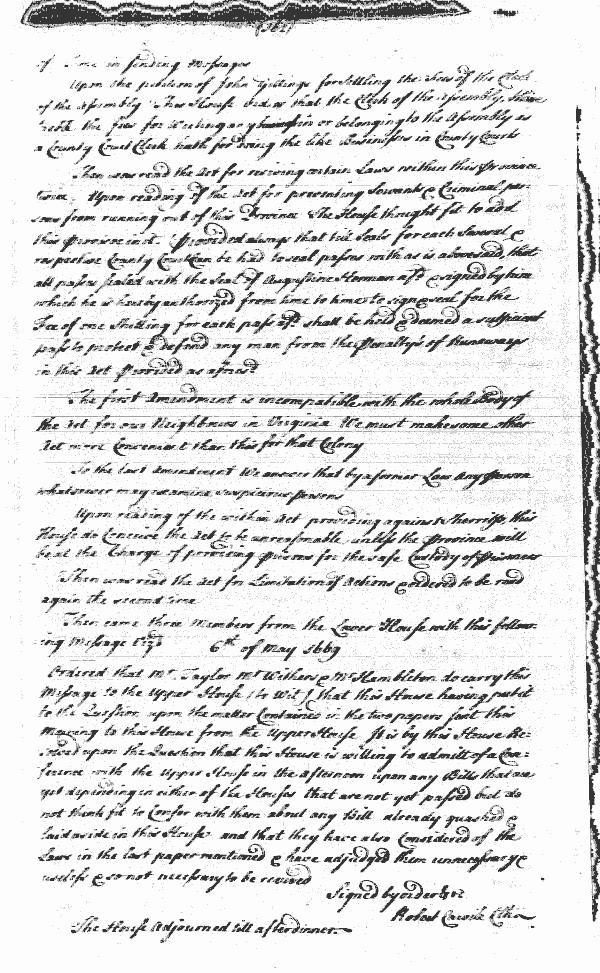 of Time in sending Messages
Upon the petition of John Gittings for Settling the Fees of the Clerk
of the Assembly This House
the fees for Writeing any business in or belonging to the Assembly as
a County Court Clerk hath for doing the like Businesses in County Courts
Then was read the Act for reviving certain Laws within this Province
Upon reading of the Act for preventing Servants & Criminal per-
sons from running out of this Province The House thought fit to add
this Provisoe in it. Provided always that till Seals for each Several &
respective County Court can be had to seal passes with as is abovesaid, that
all passes sealed with the Seal of Augustine Herman afd & signed by him
which he is hereby authorized from time to time to sign & seal for the
Fee of one Shilling for each pass afd shall be held & deemed a sufficient
pass to protect & defend any man from the Penaltys of Runaways
in this Act Provided as aforesd
The first Amendment is incompatible with the whole Body of
the Act for our Neighbours in Virginia We must make some other
Act more Convenient than this for that Colony
To the last Amendment We answer that by a former Law Any Person
whatsoever may examine suspicious persons
Upon reading of the within Act providing against Sherriffs this
House do Conceive the Act to be unreasonable unless the Province will
be at the Charge of providing Prisons for the safe Custody of Prisoners
Then was read the Act for Limitation of Actions & ordered to be read
again the second time
Then came three Members from the Lower House with this follow-
ing Message Vizt 6th of May 1669
Ordered that Mr Taylor Mr Withers & Mr Hambleton do carry this
Message to the Upper House (to Wit) that this House having put it
to the Question upon the matter Contained in the two papers sent this
Morning to this House from the Upper House It is by this House Re-
solved upon the Question that this House is willing to admitt of a Con-
ference with the Upper House in the Afternoon upon any Bills that are
yet depending in either of the Houses that are not yet passed but do
not think fit to Confer with them about any Bill already quashed &
laid aside in this House and that they have also Considered of the
Laws in the last paper mentioned & have adjudged them unnecessary &
useless & so not necessary to be revived
Signed by order &c
Robert
The House Adjourned till after dinner.